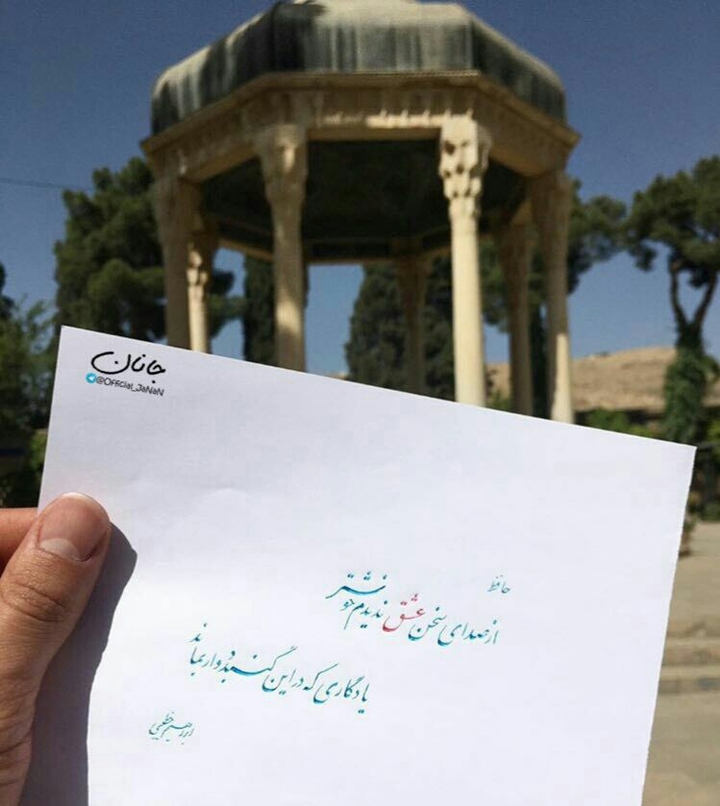 جانان
@Official_JaNaN
حافظ
از صدای سخن عشق ندیدم خوشتر
یادگاری که در این گنبد دوار بماند